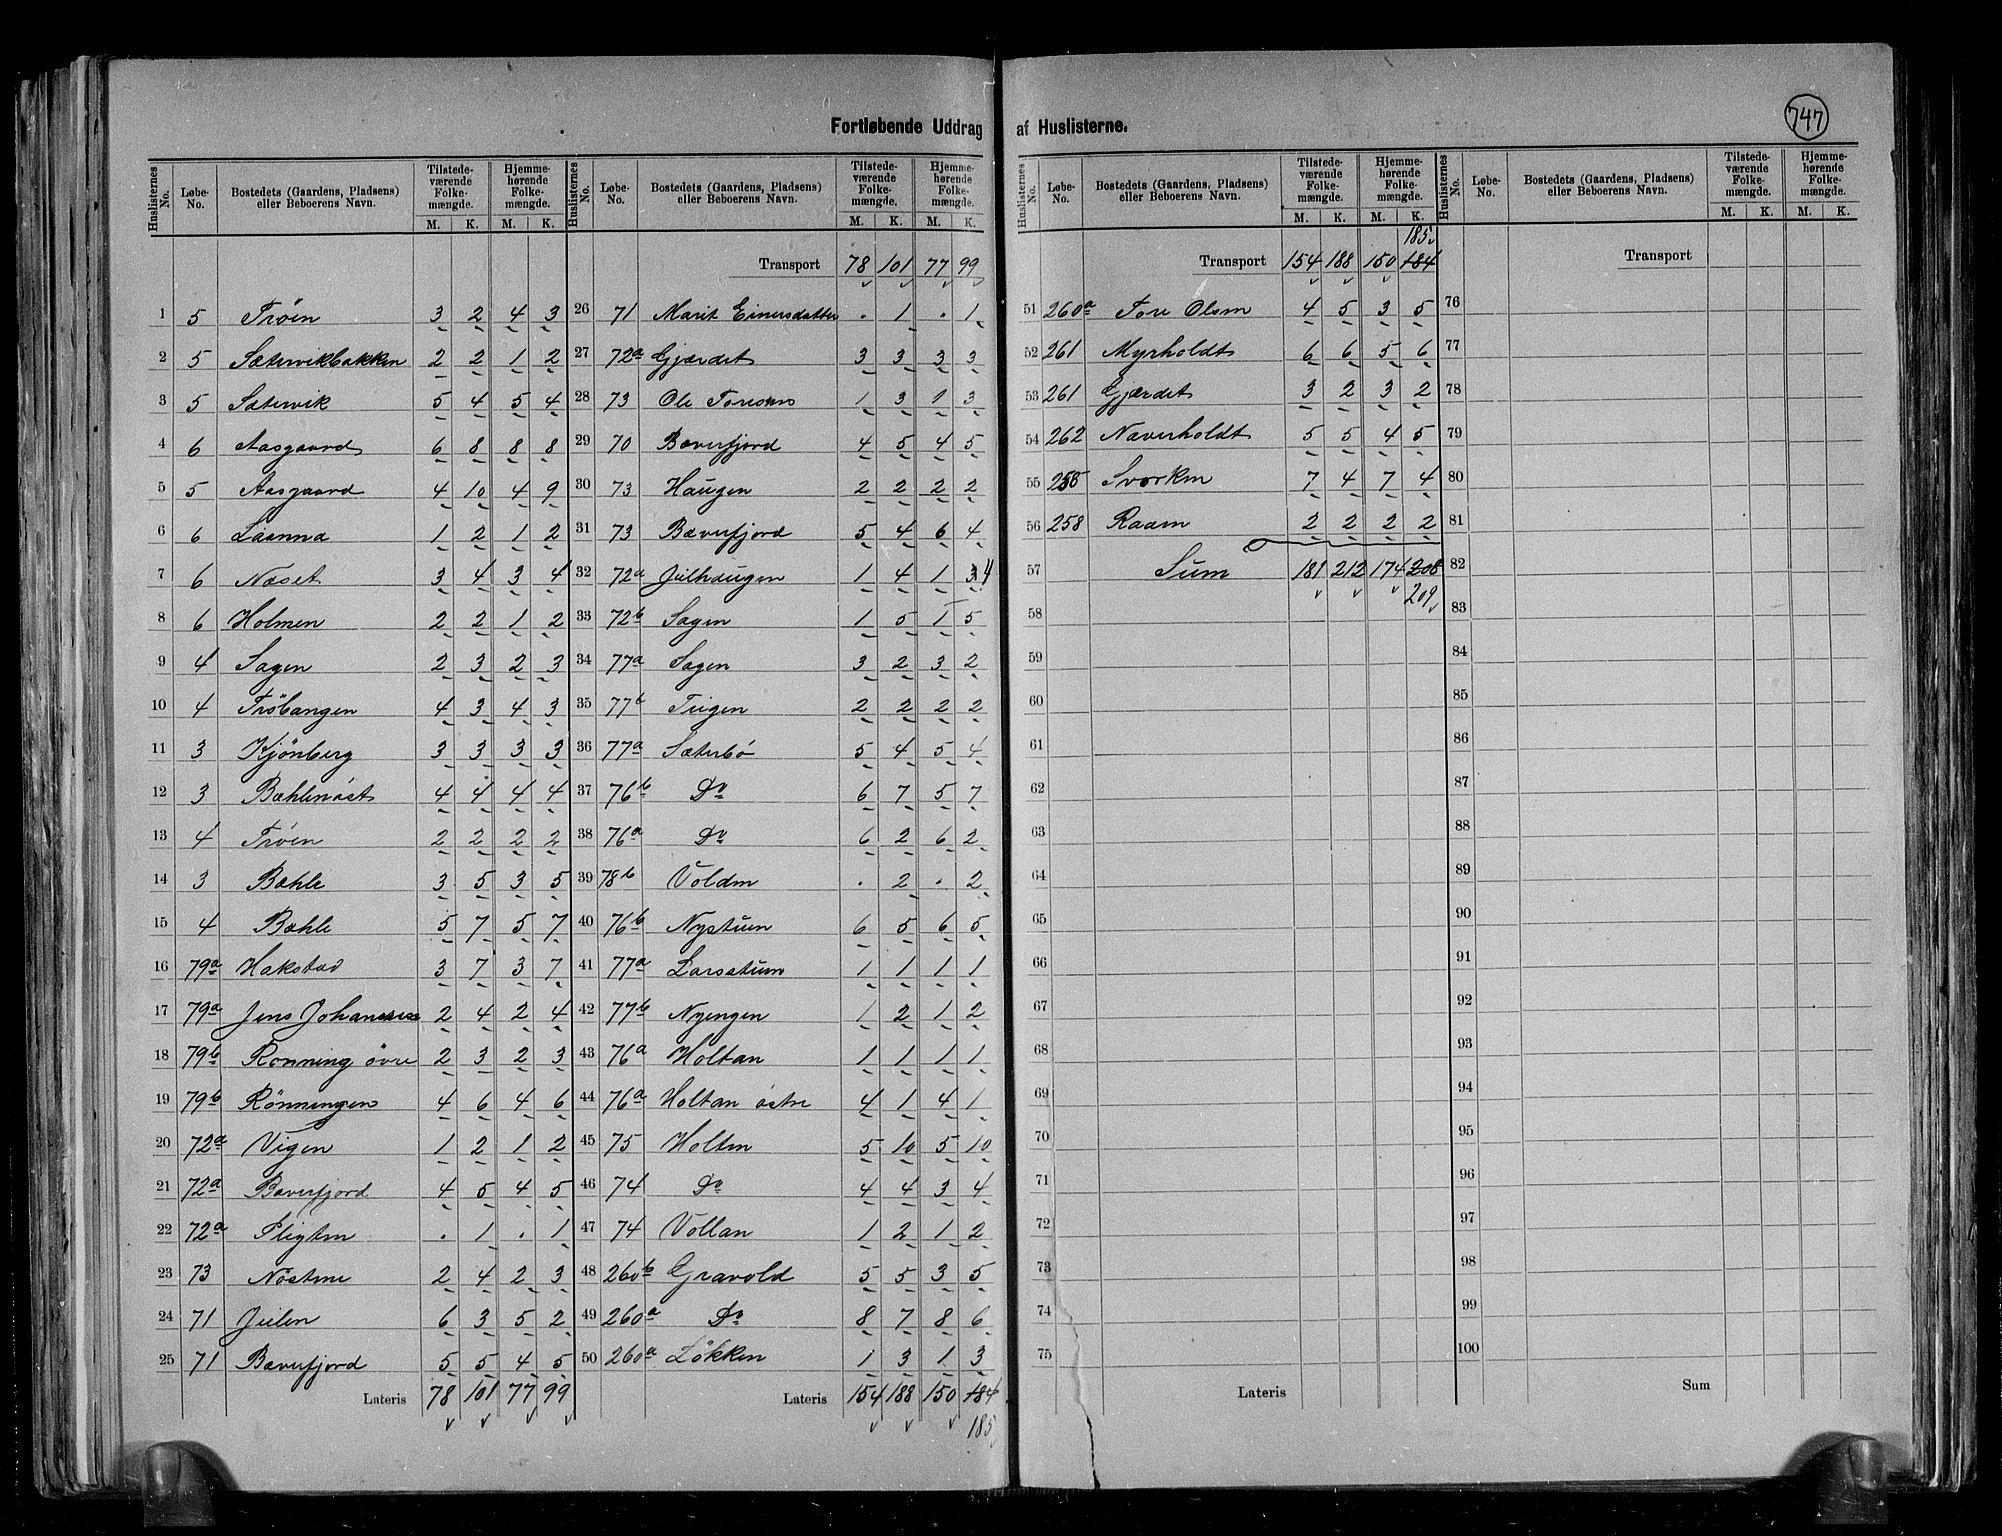 747
Fortløbende Uddrag af Huslisterne.
Huslisternes No. Løbe-No. Bostedets (Gaardens, Pladsens) eller Beboerens Navn. Tilstedeværende Folkemængde. M. K. Hjemmehørende Folkemængde. M. K.
1 5 Trøen 3 2 4 3
2 5 Sætervikbakken 2 2 1 2
3 5 Sætervik 5 4 5 4
4 6 Aasgaard 6 8 8 8
5 5 Aasgaard 4 10 4 9
6 6 Laanna 1 2 1 2
7 6 Næset 3 4 3 4
8 6 Holmen 2 2 1 2
9 4 Sagen 2 3 2 3
10 4 Trøbangen 4 3 4 3
11 3 Kjönberg 3 3 3 3
12 3 Bæhlenöst 4 4 4 4
13 4 Trøen 2 2 2 2
14 3 Bæhle 3 5 3 5
15 4 Bæhle 5 7 5 7
16 79a Hakstad 3 7 3 7
17 79a Jens Johannesen 2 4 2 4
18 79b Rønning övre 2 3 2 3
19 79b Rønningen 4 6 4 6
20 72a Vigen 1 2 1 2
21 72a Bæverfjord 4 5 4 5
22 72a Pligten . 1 . 1
23 73 Nöstene 2 4 2 3
24 71 Julen 6 3 5 2
25 71 Bæverfjord 5 5 4 5
Lateris 78 101 77 99
Huslisternes No. Løbe-No. Bostedets (Gaardens, Pladsens) eller Beboerens Navn. Tilstedeværende Folkemængde. M. K. Hjemmehørende Folkemængde. M. K.
Transport 78 101 77 99
26 71 Marit Einersdatter . 1 . 1
27 72a Gjærdet 3 3 3 3
28 73 Ole Toresens 1 3 1 3
29 70 Bæverfjord 4 5 4 5
30 73 Haugen 2 2 2 2
31 73 Bæverfjord 5 4 6 4
32 72a Julhaugen 1 4 1 3 4
33 72b Sagen 1 5 1 5
34 77a Sagen 3 2 3 2
35 77b Tugen 2 2 2 2
36 77a Sæterbø 5 4 5 4
37 76b Do 6 7 5 7
38 76a Do 6 2 6 2
39 78b Volden . 2 . 2
40 76b Nystuen 6 5 6 5
41 77a Larsstuen 1 1 1 1
42 77b Nyengen 1 2 1 2
43 76a Holtan 1 1 1 1
44 76a Holtan østre 4 1 4 1
45 75 Holten 5 10 5 10
46 74 Do 4 4 3 4
47 74 Vollan 1 2 1 2
48 260b Gravold 5 5 3 5
49 260a Do 8 7 8 6
50 260a Lökken 1 3 1 3
Lateris 154 188 150 184
185
Huslisternes No. Løbe-No. Bostedets (Gaardens, Pladsens) eller Beboerens Navn. Tilstedeværende Folkemængde. M. K. Hjemmehørende Folkemængde. M. K.
185
Transport 154 188 150 184
51 260a Tore Olsen 4 5 3 5
52 261 Myrholdt 6 6 5 6
53 261 Gjærdet 3 2 3 2
54 262 Næverholdt 5 5 4 5
55 258 Svorken 7 4 7 4
56 258 Raaen 2 2 2 2
57 Sum 181 212 174 208
58 209
59
60
61
62
63
64
65
66
67
68
69
70
71
72
73
74
75
Lateris
Huslisternes No. Løbe-No. Bostedets (Gaardens, Pladsens) eller Beboerens Navn. Tilstedeværende Folkemængde. M. K. Hjemmehørende Folkemængde. M. K.
Transport
76
77
78
79
80
81
82
83
84
85
86
87
88
89
90
91
92
93
94
95
96
97
98
99
100
Sum